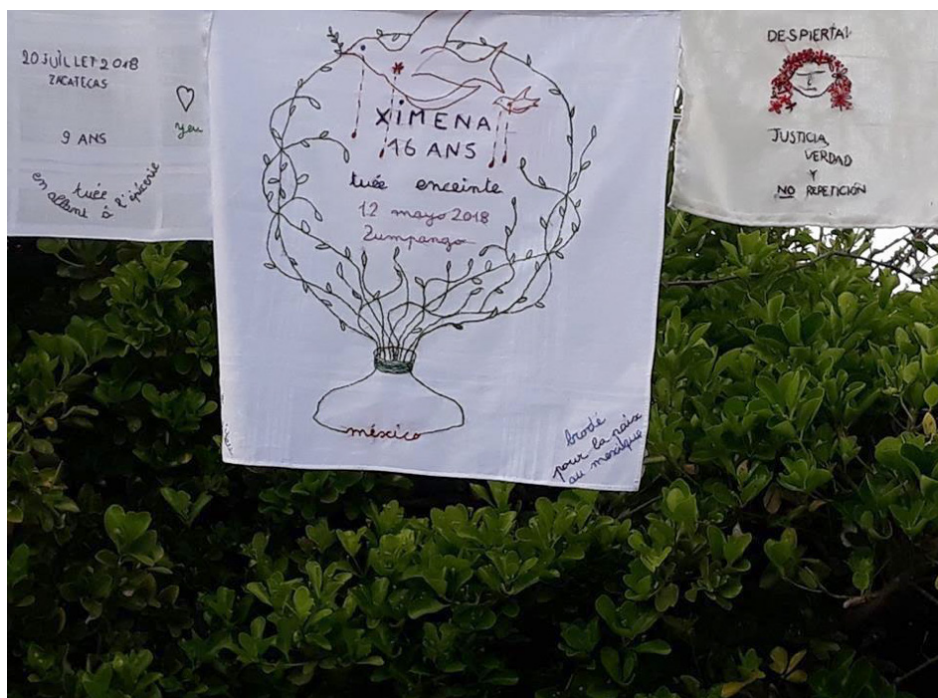 20 JUILLET 2018
ZACATECAS
9 ANS
tuée
en allant à l'épicerie
Yeu
XIMENA
16 ANS
tuée enceinte
12 mayo 2018
Zumpango
méxico
brodé
pour la paix
au mexique
DESPIERTA!
JUSTICIA,
VERDAD
Y
NO REPETICIÓN